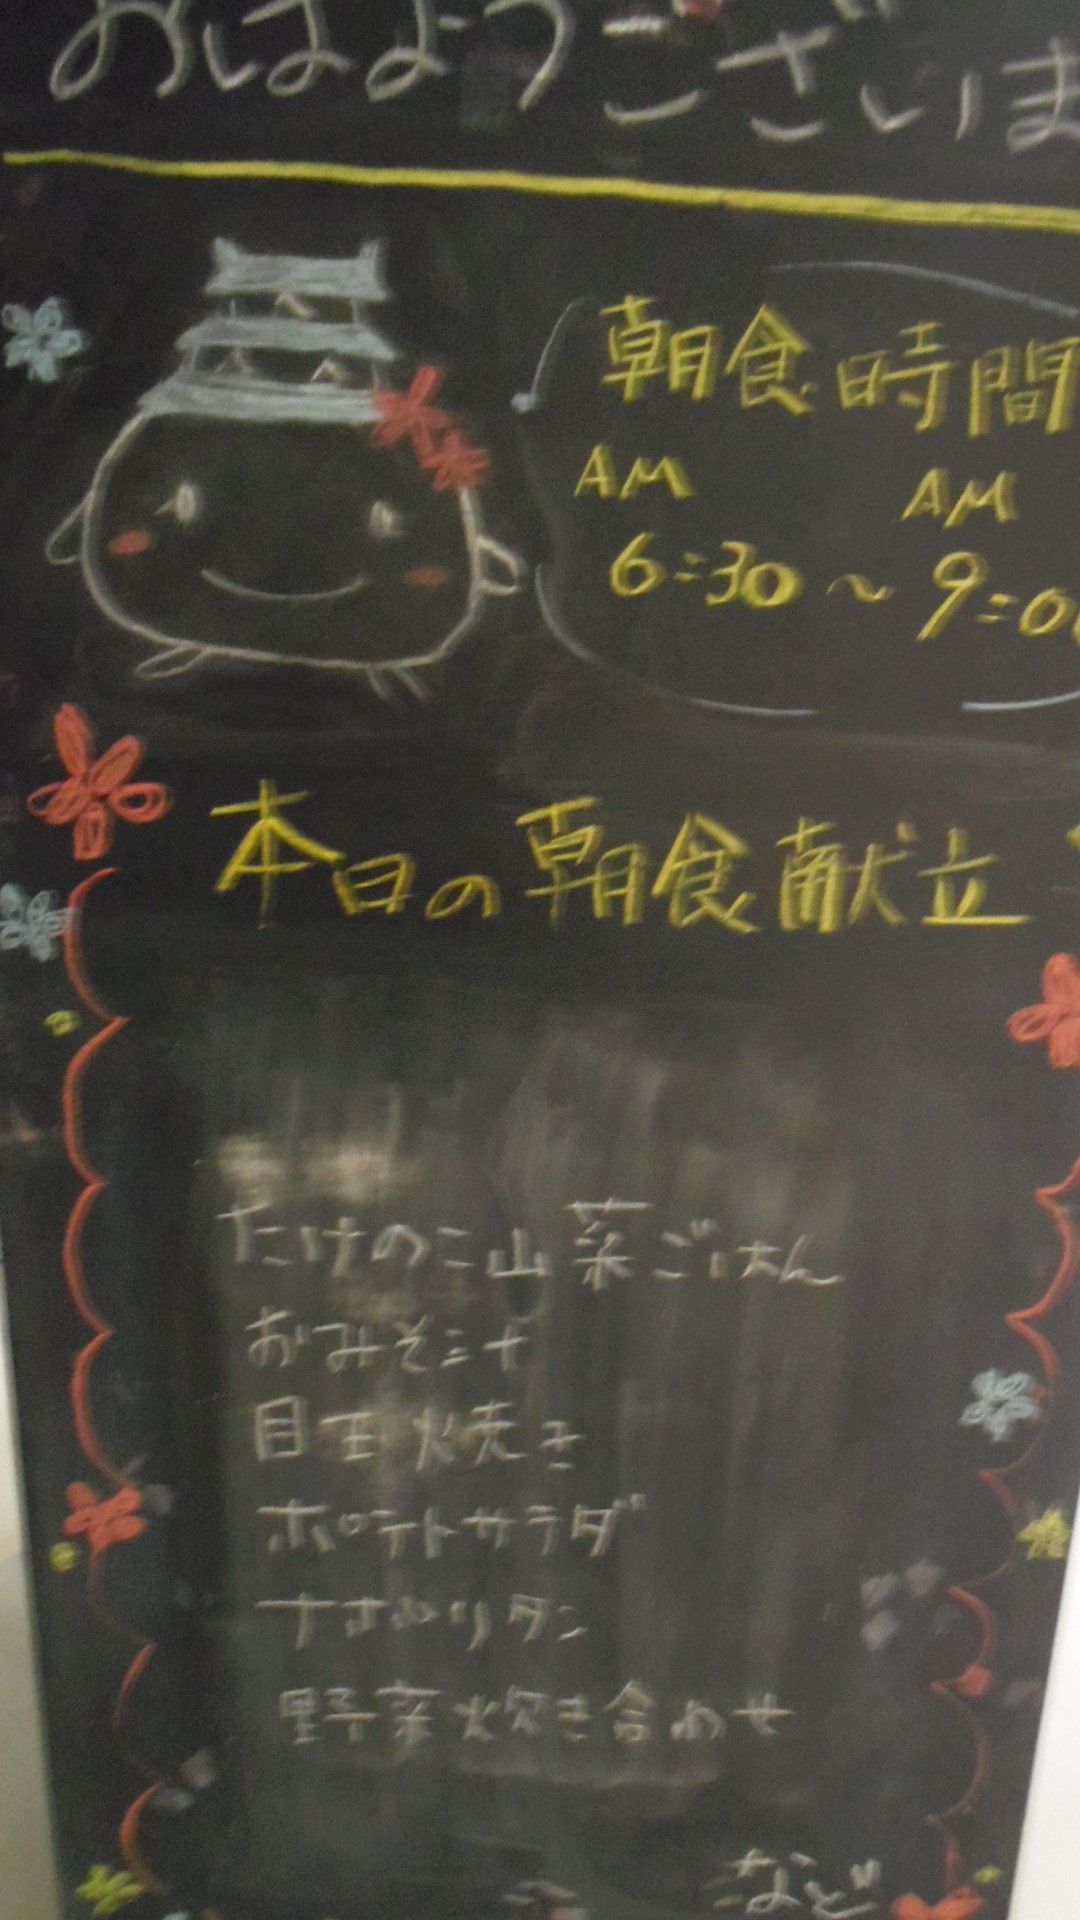 おはようございま
朝食時間
AM AM
6:30～9:00
本日の朝食献立
たけのこ山菜ごはん
おみそ汁
目玉焼き
ポテトサラダ
ナポリタン
野菜炊き合わせ
など